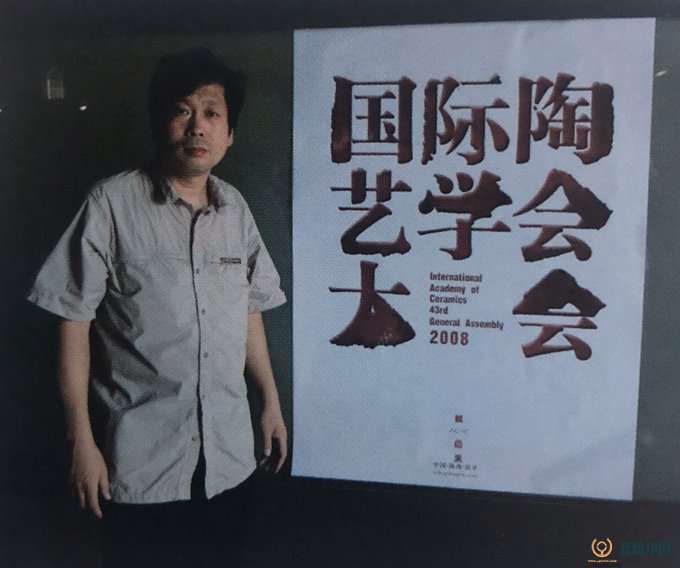 国际陶
艺学会
大会
International
Academy of
Ceramics
43rd
General Assembly
2008
中国·陕西·富平